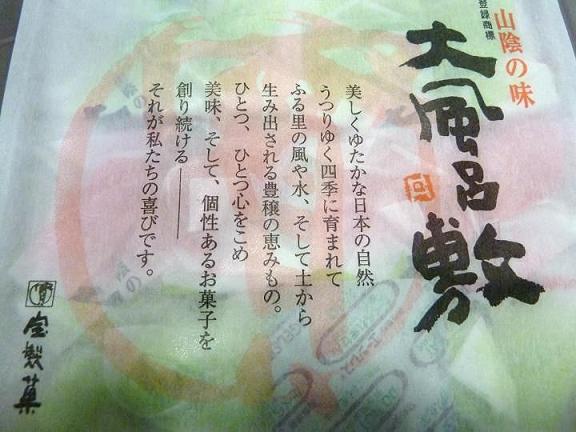 登録商標
山陰の味
大風呂敷
美しくゆたかな日本の自然
うつりゆく四季に育まれて
ふる里の風や水、そして土から
生み出される豊穣の恵みもの。
ひとつ、ひとつ心をこめ
美味、そして、個性あるお菓子を
創り続ける――――
それが私たちの喜びです。
寶
宝製菓